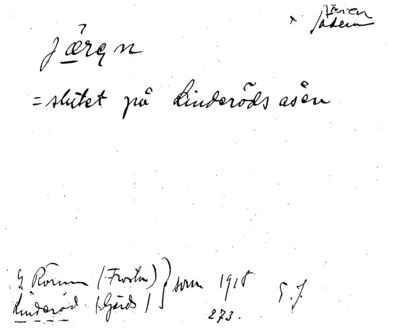 × Jären
Jädern
järqn
= slutet på Linderödsåsen
G Rörum (Frosta) } som 1918
Linderöd (Gärds)
273. G. J